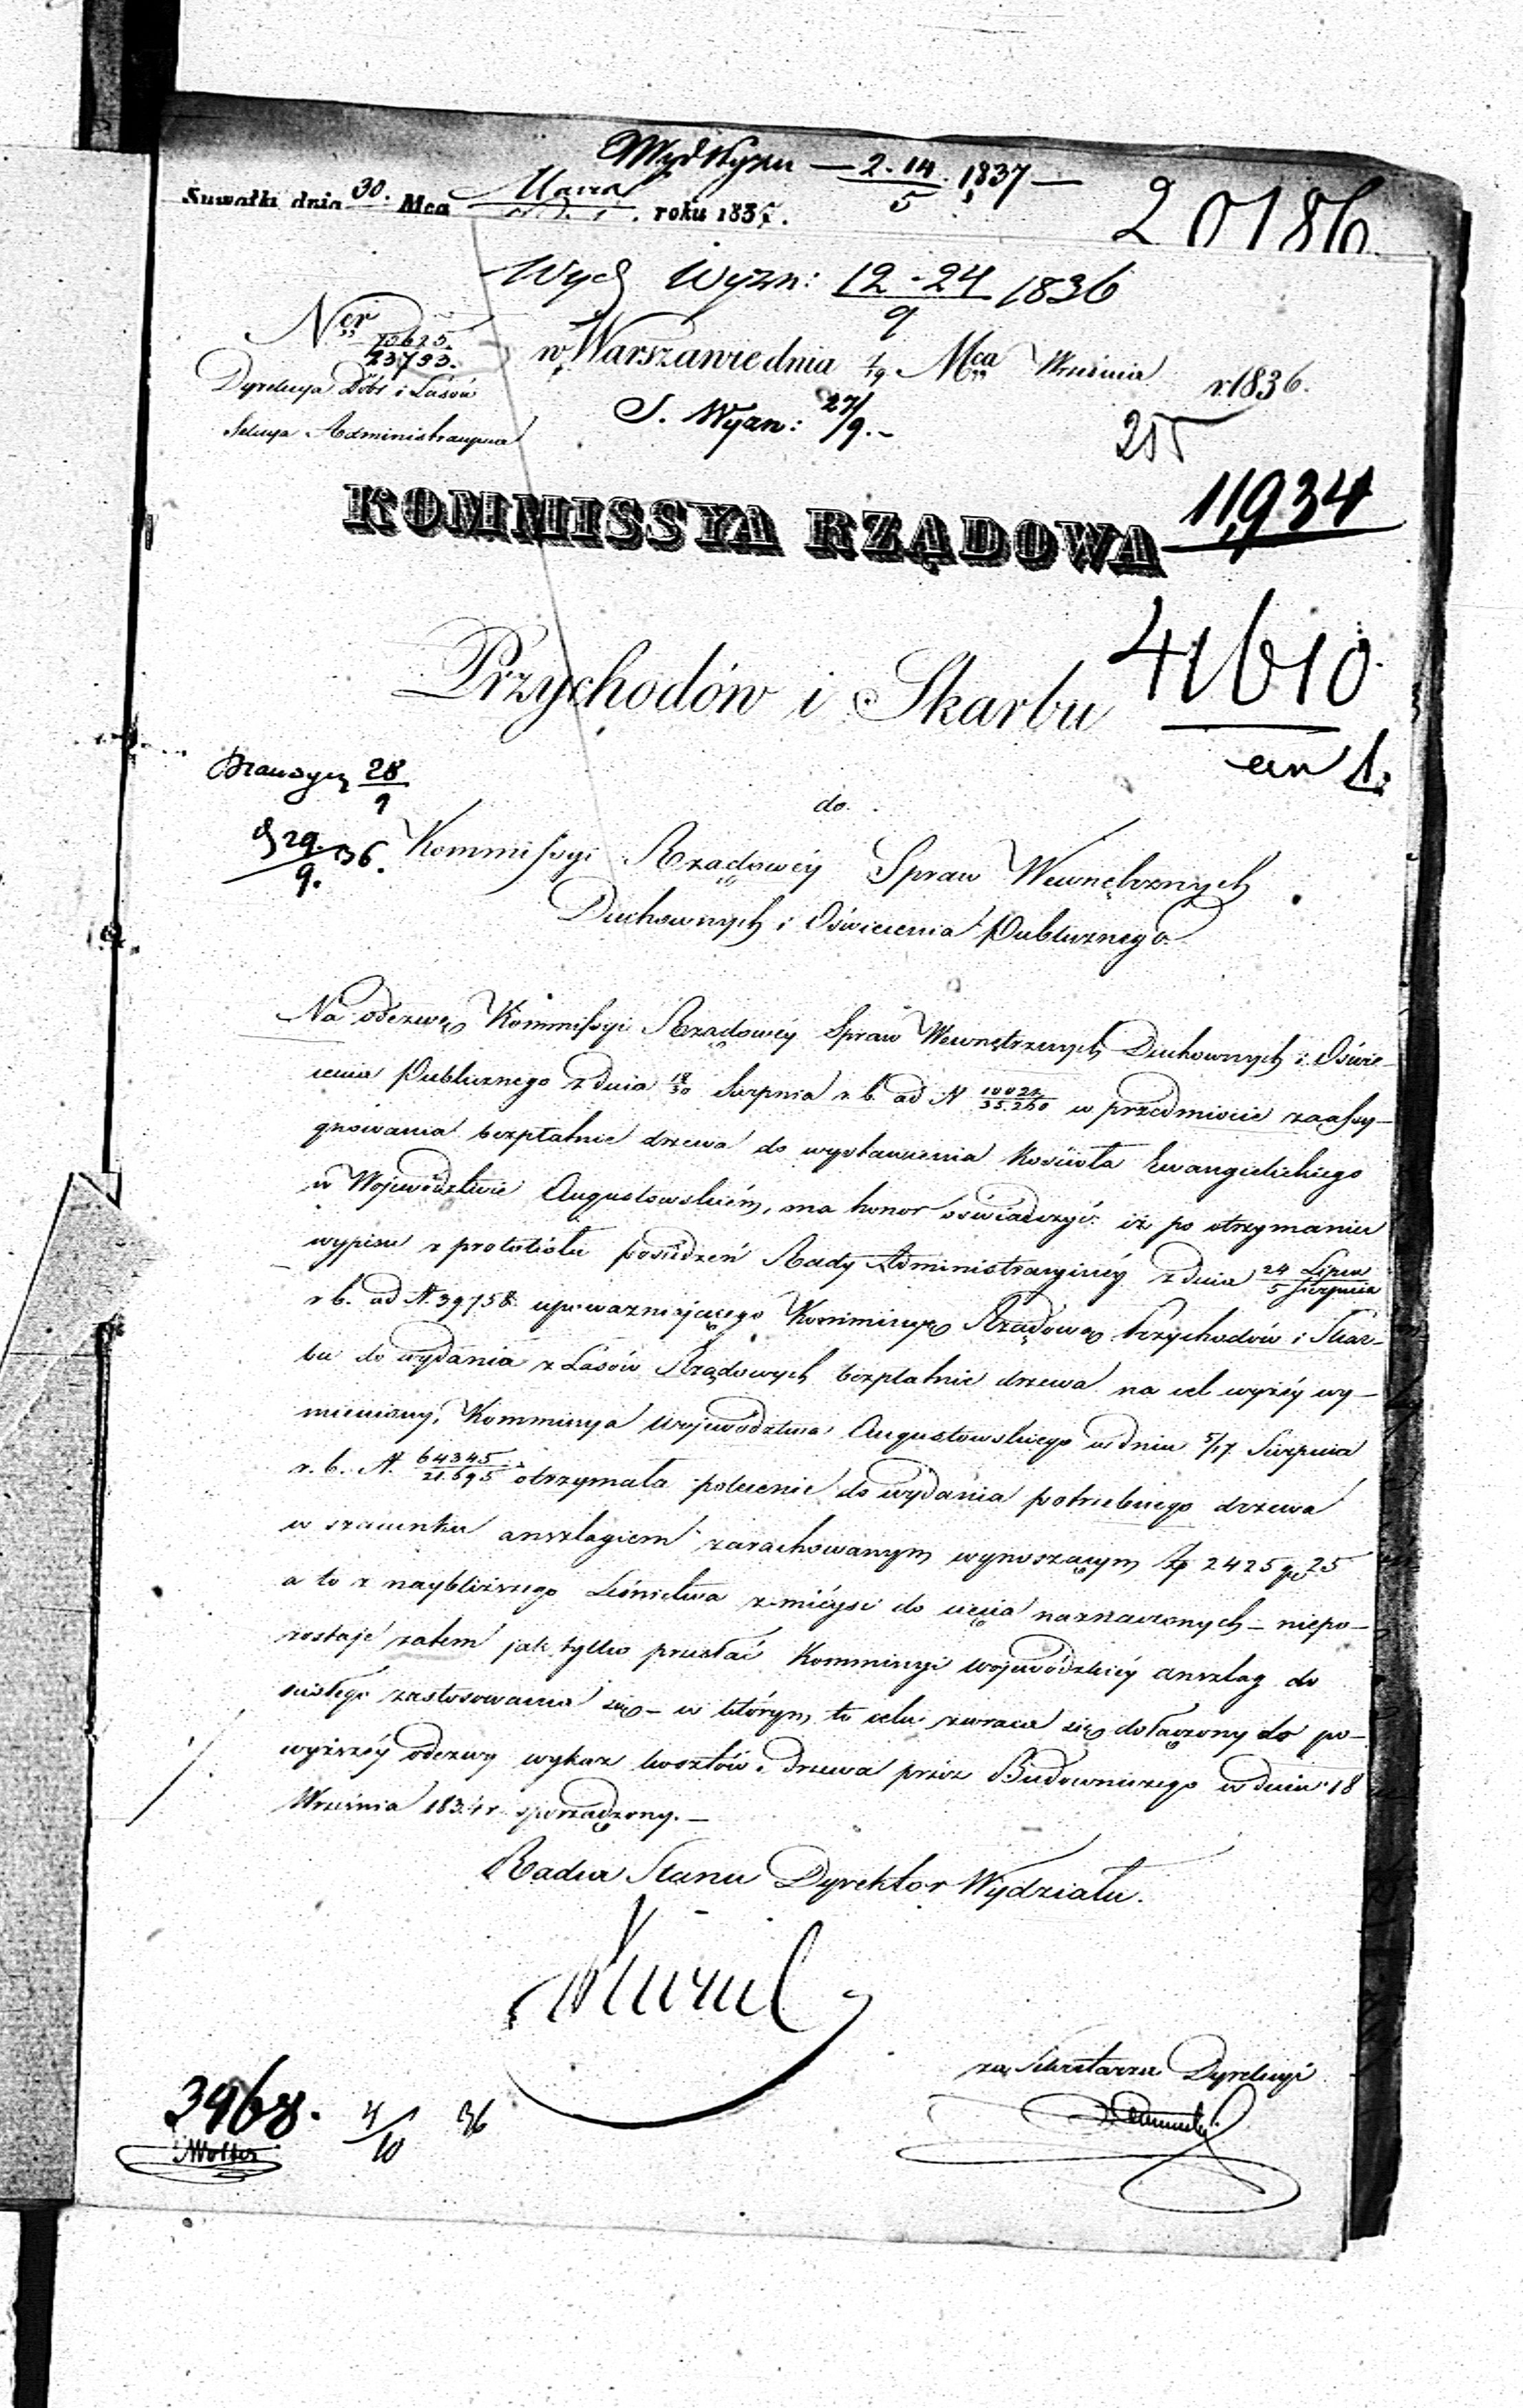 Wydz Wyzn — 2.14/5 1837 —
Suwałki dnia 30. Mca Marca roku 1837.
20186
Wydz Wyzn: 12-24/9 1836
Ner 23793.
w Warszawie dnia 7/19 Mca Września r. 1836.
Dyrekcya Dóbr i Lasów
S. Wyzn: 27/9. -
Sekcya Administracyjna
255
KOMMISSYA RZĄDOWA
11,934
Przychodów i Skarbu
41610
an 1.
28/9
do
29/9. 36.
Kommissyi Rządowéy Spraw Wewnętrznych
Duchownych i Oświecenia Publicznego.
Na odezwę Kommissyi Rządowéy Spraw Wewnętrznych Duchownych i Oświe-
cenia Publicznego z dnia 18/30 Sierpnia r. b. ad N 10024/35.260 w przedmiocie zaassy-
gnowania bezpłatnie drzewa do wystawienia Kościoła Ewangielickiego
w Województwie Augustowskiém, ma honor oświadczyć: iż po otrzymaniu
wypisu z protokółu posiedzeń Rady Administracyinéy z dnia 24 Lipca/5 Sierpnia
r b. ad N. 39758 upoważniaiącego Kommissyę Rządową Przychodów i Skar-
bu do wydania z Lasów Rządowych bezpłatnie drzewa na cel wyżéy wy-
mieniony, Kommissya Województwa Augustowskiego w dniu 5/17 Sierpnia
r. b. N. 64345/21.695 otrzymała polecenie do wydania potrzebnego drzewa
w szacunku anszlagiem zarachowanym wynoszącym Zp 2425 gr 25
a to z naybliższego Leśnictwa z mieysc do cięcia naznaczonych – niepo-
zostaje zatem jak tylko przesłać Kommissyi Wojewódzkiéy anszlag do
ścisłego zastosowania się – w którym to celu zwraca się dołączony do po-
wyższéy odezwy wykaz kosztów drzewa przez Budowniczego w dniu 18
Września 1834 r. sporządzony. –
Radca Stanu Dyrektor Wydziału.
za Sekretarza Dyrekcyi
3968. 4/10 36
Wolter